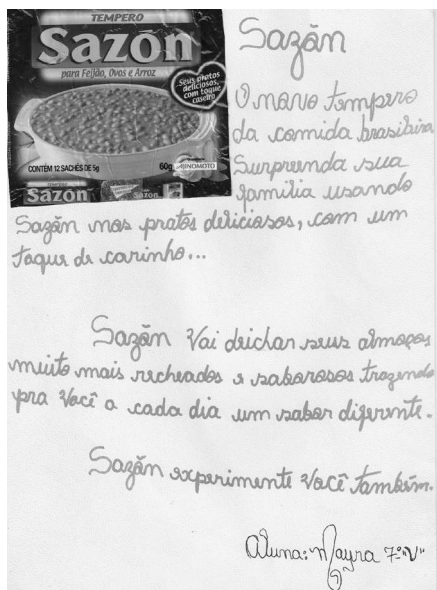 TEMPERO
Sazón
para Feijão, Ovos e Arroz
Seus pratos
deliciosos,
com toque
caseiro
CONTÉM 12 SACHÊS DE 5g
60g
AJINOMOTO
Sazón
Sazón
Sazãn
O novo tempero
da comida brasileira
Surpreenda sua
família usando
Sazãn nos pratos deliciosos, com um
toque de carinho...
Sazãn Vai deichar seus almoços
muito mais recheados e saborosos trazendo
pra Você a cada dia um sabor diferente.
Sazãn experimente Você também.
Aluna: Mayra 7º "V"